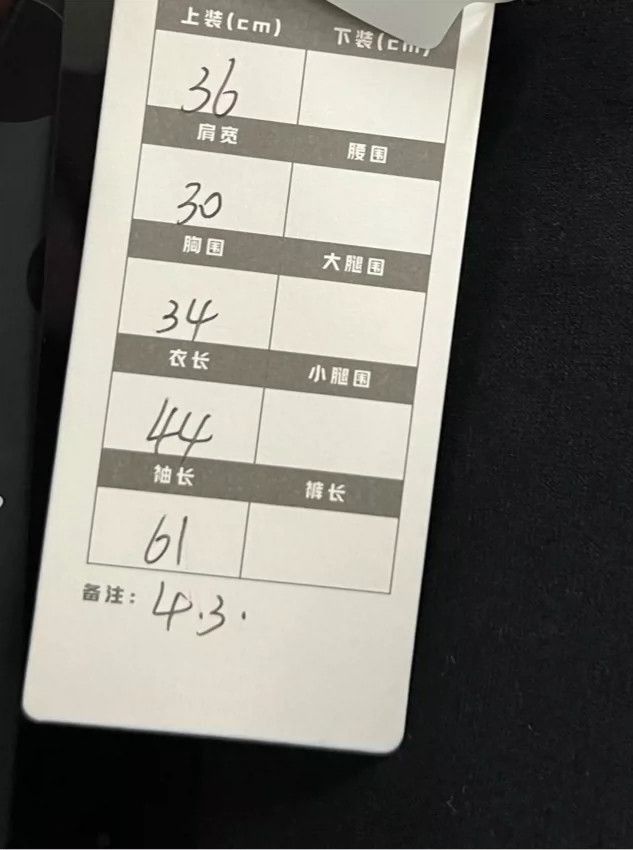 上装(cm) 下装(cm)
36
肩宽 腰围
30
胸围 大腿围
34
衣长 小腿围
44
袖长 裤长
61
备注: 4.3.